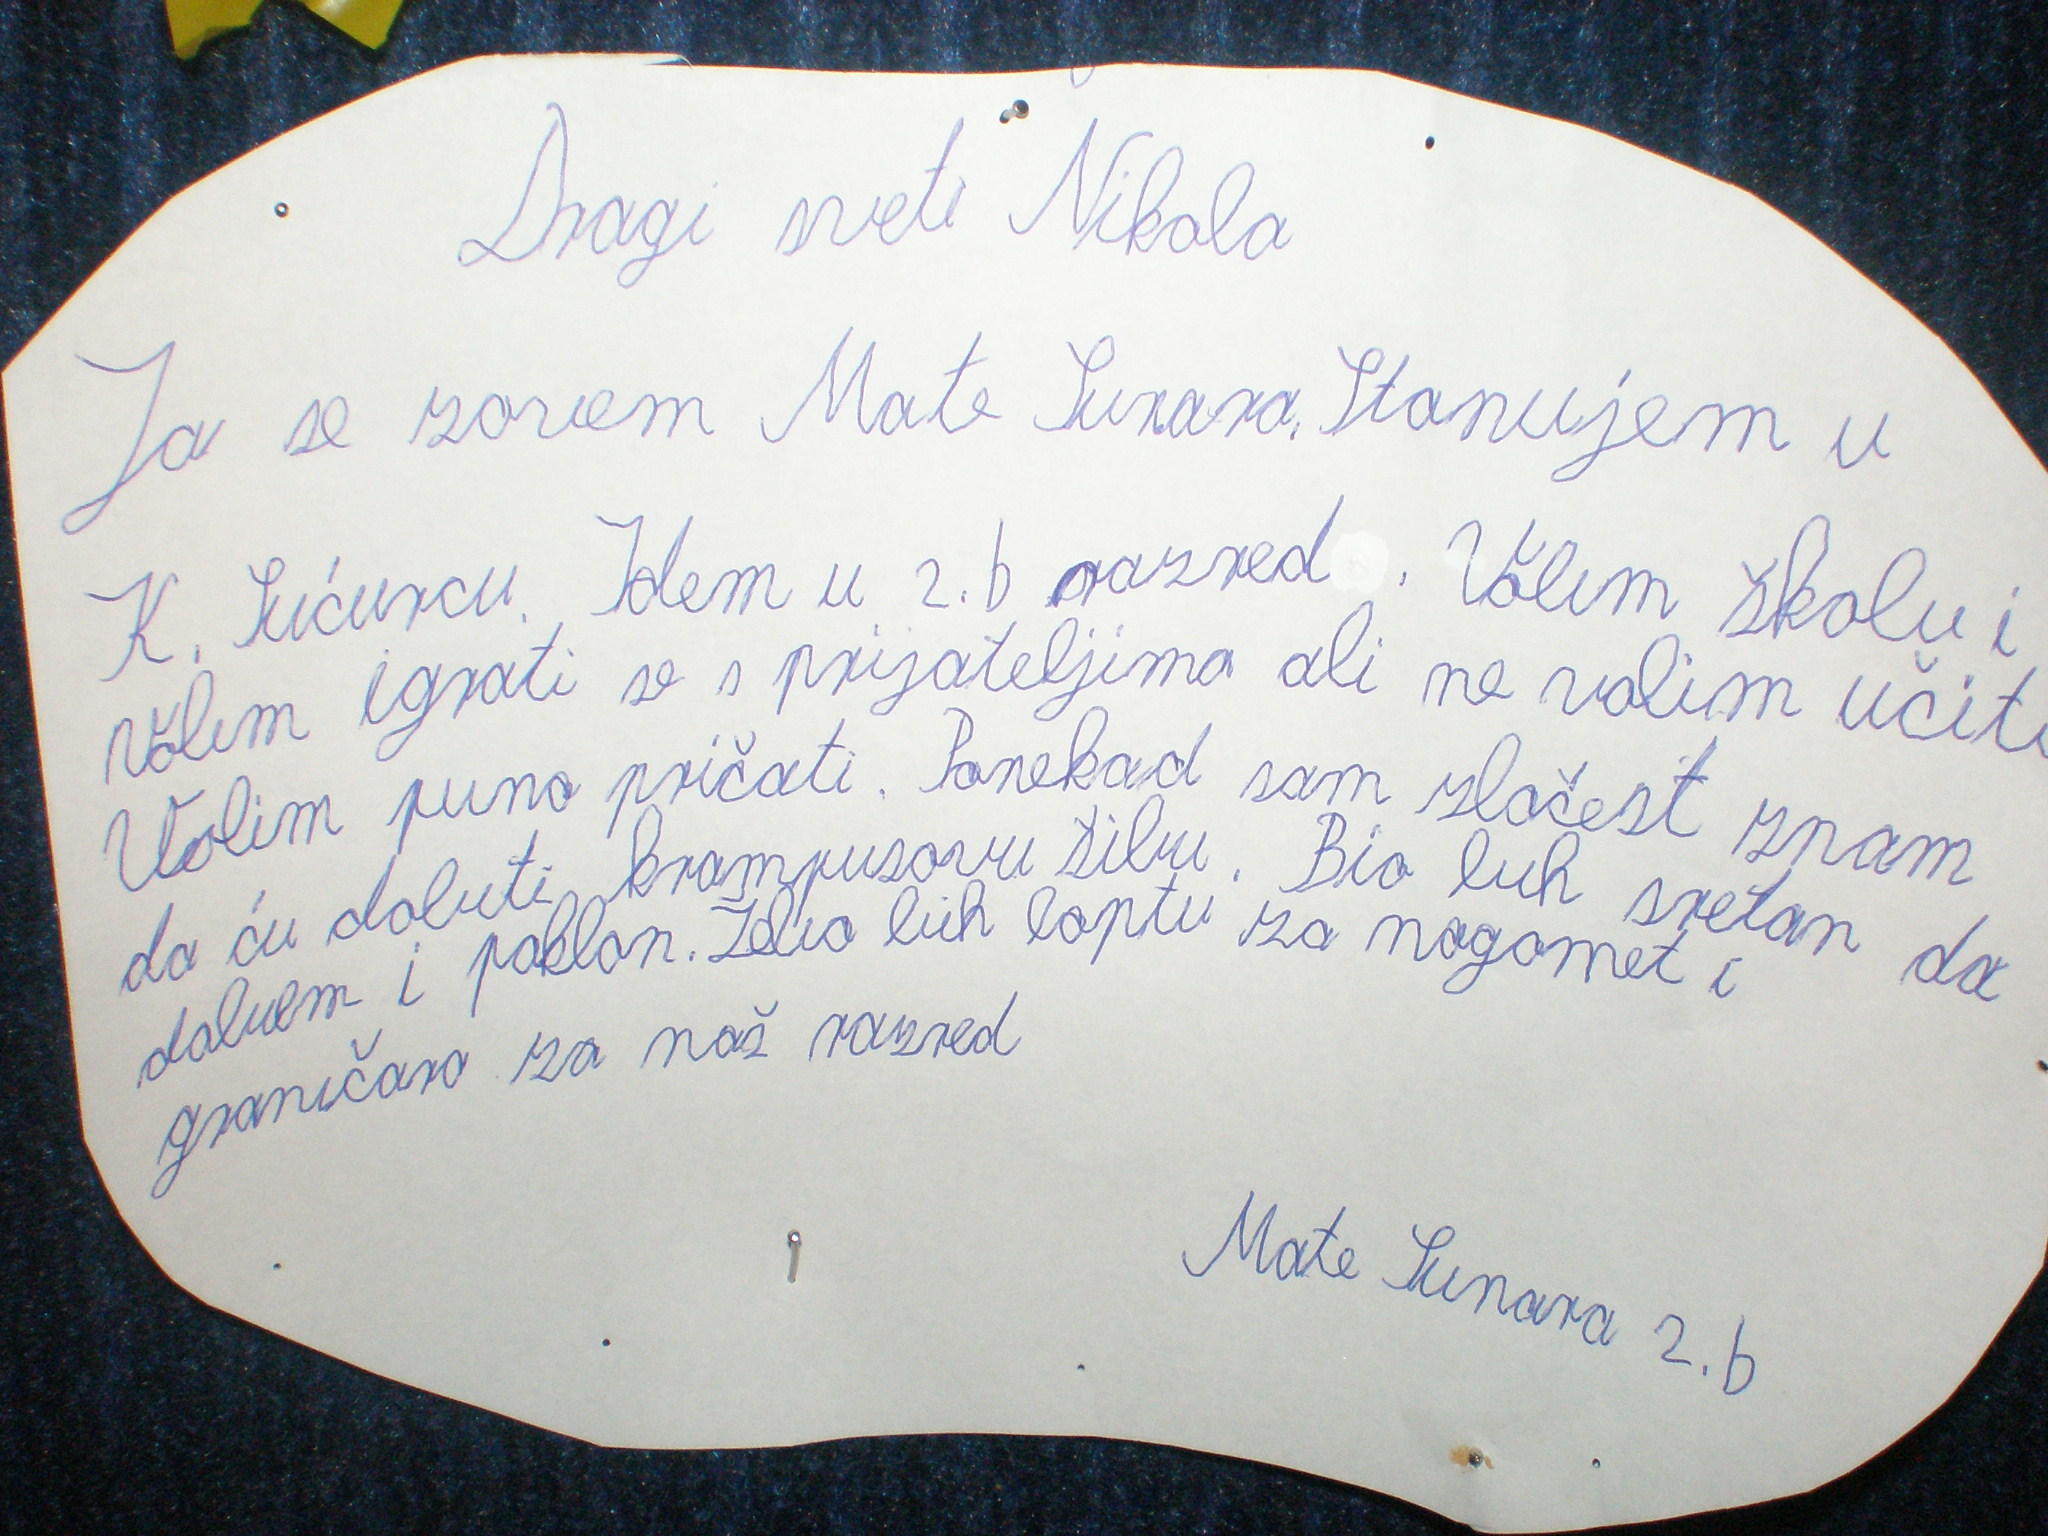 Dragi sveti Nikola
Ja se zovem Mate Sunara. Stanujem u
K. Sućurcu. Idem u 2.b razred. Volim školu i
volim igrati se s prijateljima ali ne volim učiti
Volim puno pričati. Ponekad sam zločest znam
da ću dobiti krampusovu šibu. Bio bih sretan da
dobijem i poklon. Želio bih loptu za nogomet i
graničara za naš razred
Mate Sunara 2.b